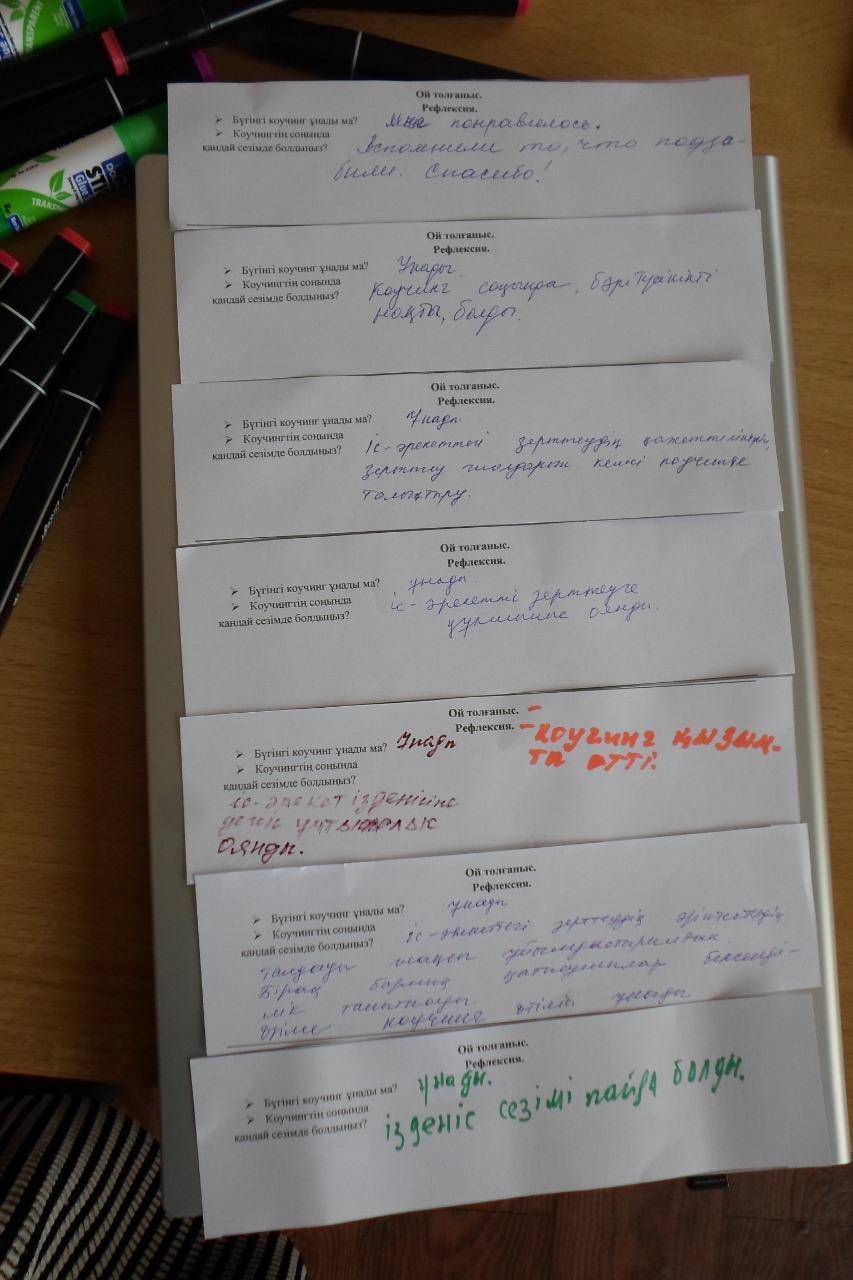 TRANSPARENT
Ой толғаныс.
Рефлексия.
➢ Бүгінгі коучинг ұнады ма? Мне понравилось.
➢ Коучингтің соңында
қандай сезімде болдыңыз? Вспомнили то, что подза-
были. Спасибо!
Ой толғаныс.
Рефлексия.
➢ Бүгінгі коучинг ұнады ма? Ұнады.
➢ Коучингтің соңында
қандай сезімде болдыңыз? Коучинг соңынра, бәрі түсінікті
нақты, болды.
Ой толғаныс.
Рефлексия.
➢ Бүгінгі коучинг ұнады ма? Ұнады.
➢ Коучингтің соңында
қандай сезімде болдыңыз? Іс-әрекеттегі зерттеудің қажеттілігін,
зерттеу келесі коучингте
толықтыру.
Ой толғаныс.
Рефлексия.
➢ Бүгінгі коучинг ұнады ма? ұнады.
➢ Коучингтің соңында
қандай сезімде болдыңыз? іс-әрекетті зерттеуге
оянды.
Ой толғаныс.
Рефлексия.
➢ Бүгінгі коучинг ұнады ма? Ұнады
- коучинг қызық-
та өтті.
➢ Коучингтің соңында
қандай сезімде болдыңыз?
іс-әрекет ізденісіне
деген құштарлық
оянды.
Ой толғаныс.
Рефлексия.
➢ Бүгінгі коучинг ұнады ма? ұнады
➢ Коучингтің соңында
қандай сезімде болдыңыз? іс-әрекеттегі зерттеудің әріптестердің
талдауы жақсы ұйымдастырылған.
Бірақ барлық қатысушылар белсенді-
лік танытпады.
коучинг өтілімі ұнады
Ой толғаныс.
Рефлексия.
➢ Бүгінгі коучинг ұнады ма? ұнады.
➢ Коучингтің соңында
қандай сезімде болдыңыз? ізденіс сезімі пайда болды.